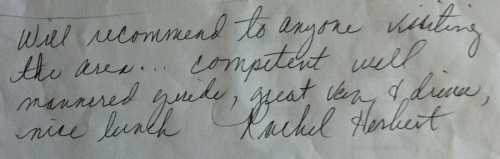 Will recommend to anyone visiting
the area... competent well
mannered guide, great van & driver,
nice lunch Rachel Herbert